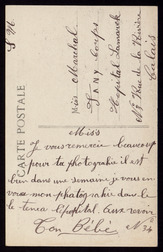 S M
CARTE POSTALE
Miss Marechal
Fany Corps
Hopital Lamarck
Nº Rue de la Rivière
Calais
Miss
Je vous remercie beaucoup
pour ta photografie il est
bien dans une semaine je vous en
vois mon photografie dans
le tenue Cpohital. Aux revoir
Ton Bébé
Nº 34